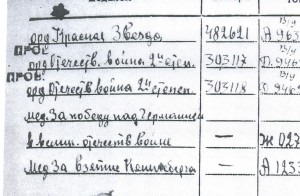 орд Красная Звезда 482621 А 963
ПРОБ
орд Отечеств. война 2й степ. 303117
ПРОБ
орд Отечеств война 2й степ. 303118
мед. За победу над Германией
в велик. отечеств войне — Ж 027
Мед За взятие Кенигсберга — А 1253